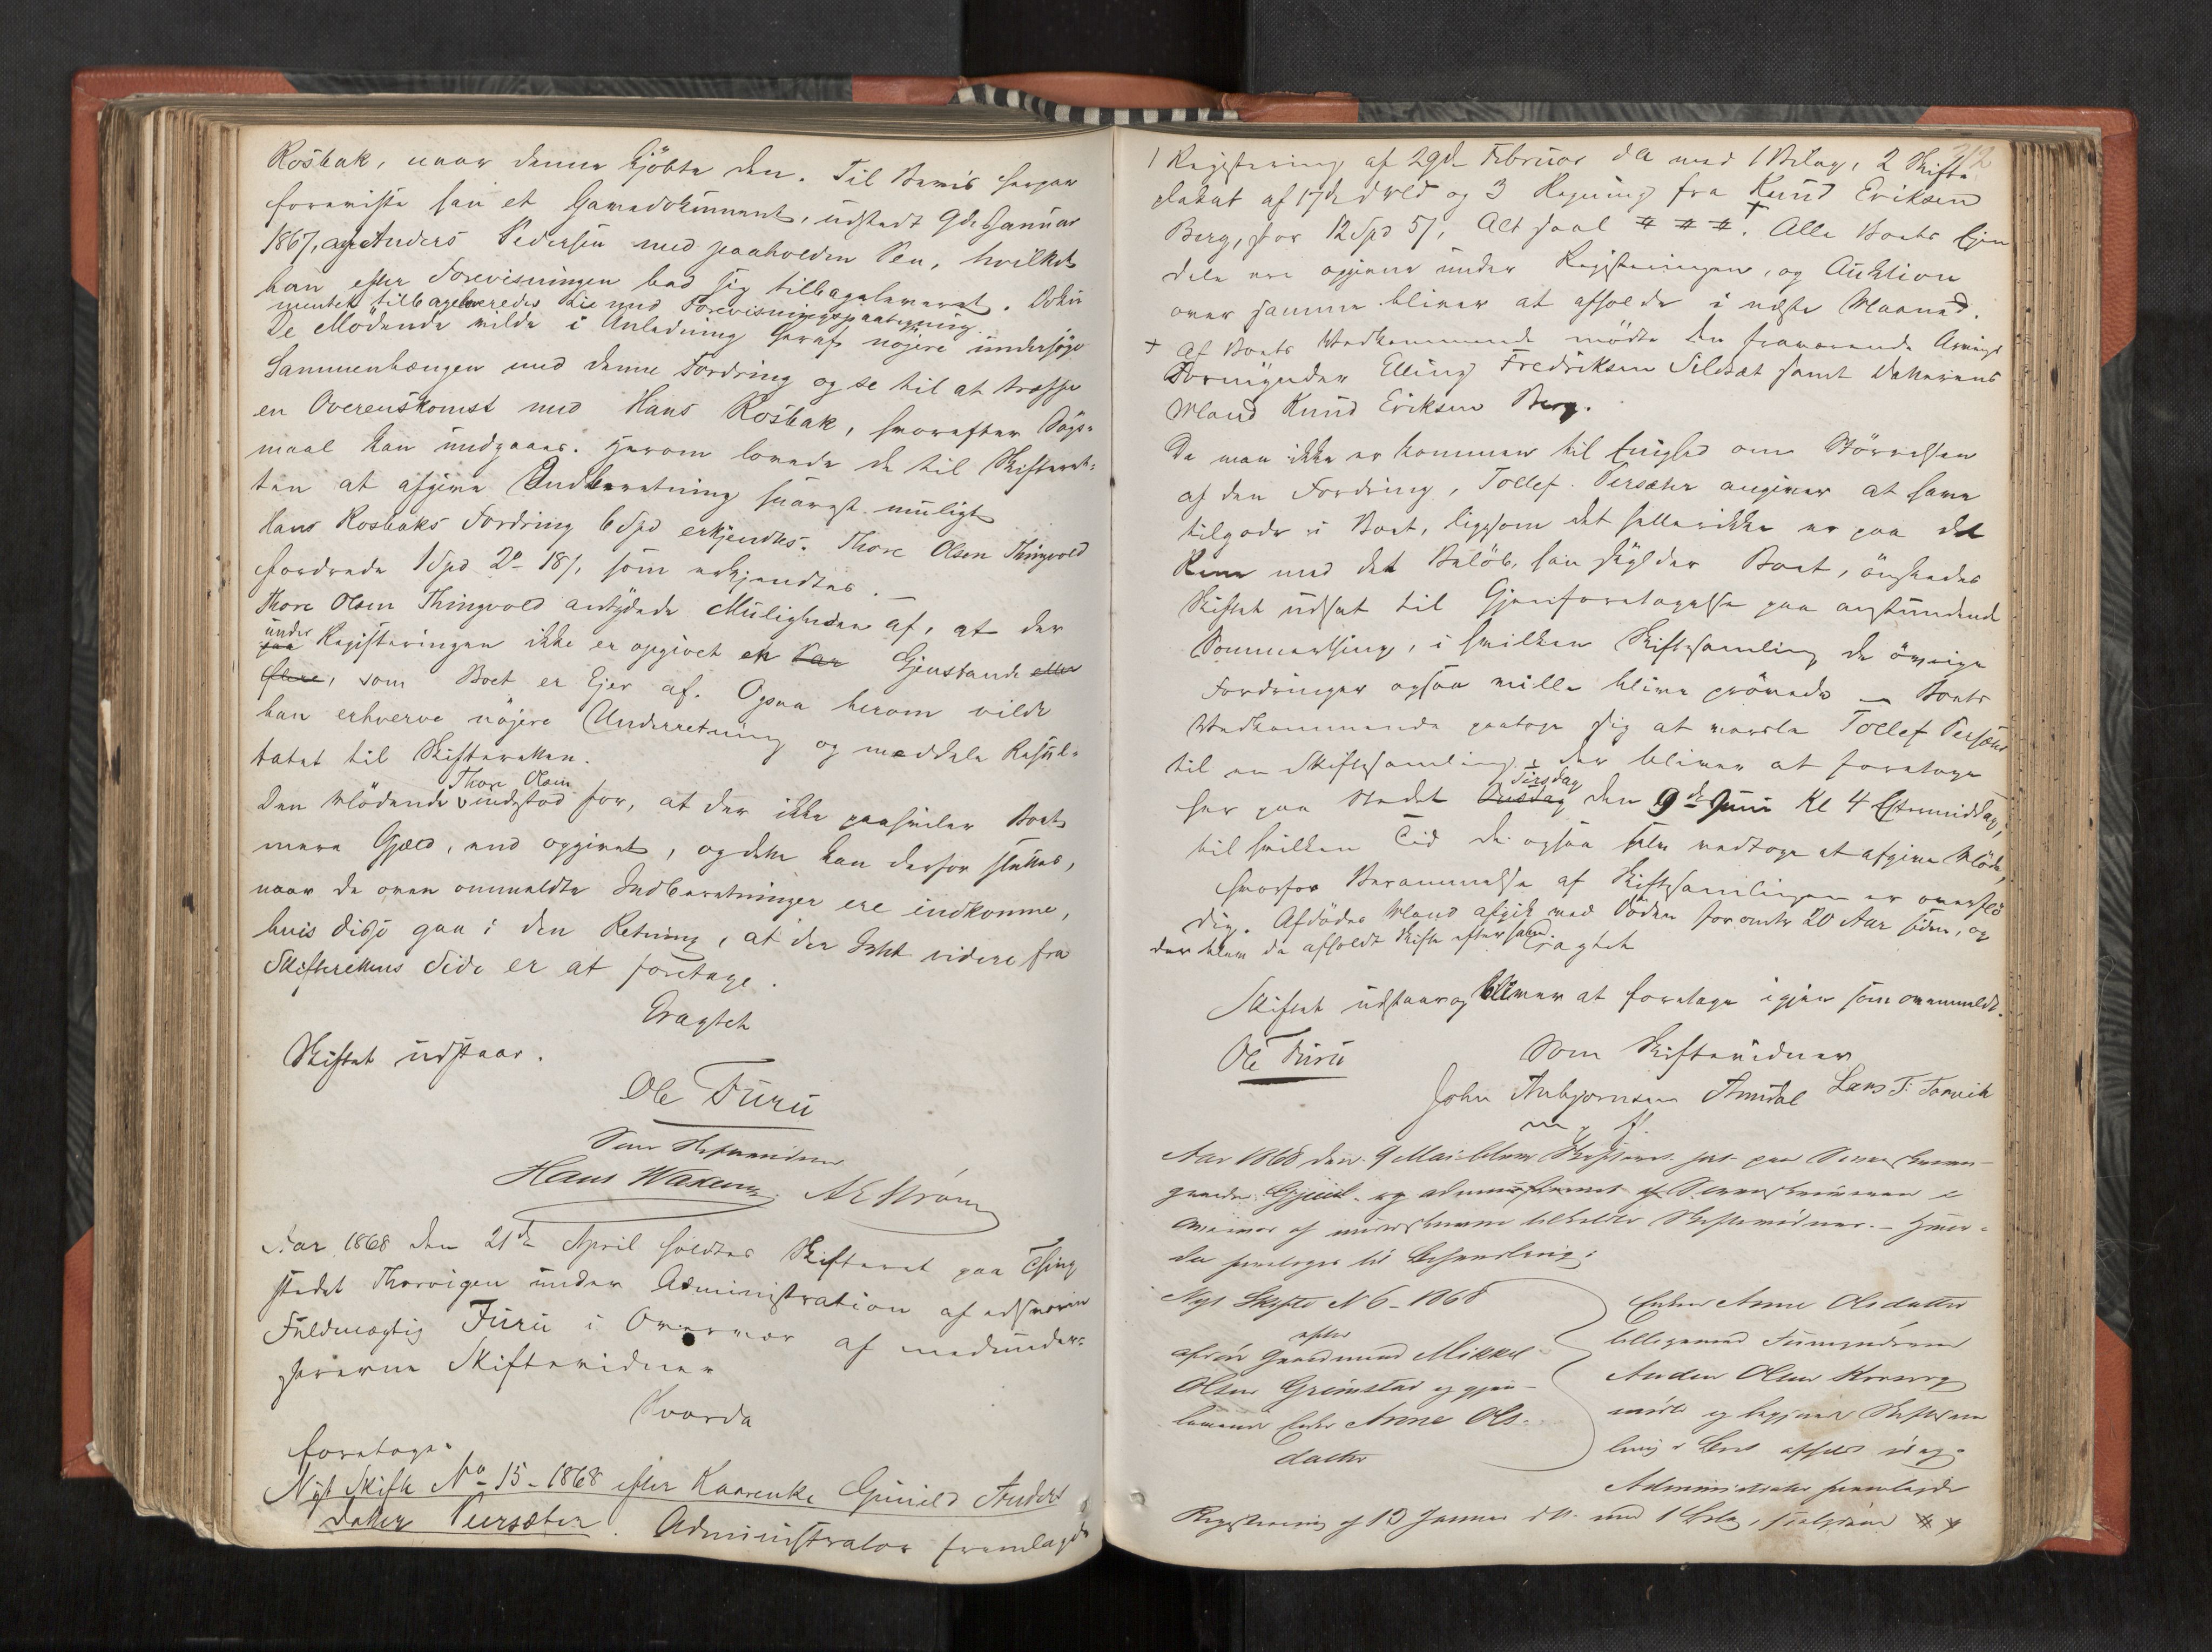 Rosbak, naar denne kjöbte den. Til Beviis herpaa
foreviste han et Gavedokument, udstedt 9de Januar
1867, af Anders Pedersen med paaholden Pen, hvilket
han efter Forevisningen bad sig tilbageleveret. Doku
mentet tilbageleveredes die med Forevisningspaategning.
De Mödende vilde i Anledning heraf nöjere undersöge
Sammenhængen med denne Fordring og se til at træffe
en Overenskomst med Hans Rosbak, hvorefter Sögs-
maal kan undgaaes. Herom lovede de til Skifteret-
ten at afgive Indberetning snarest muligt
Hans Rosbaks Fordring 6 Spd erkjendtes. Thore Olsen Thingvold
fordrede 1 Spd 2 18/, som erkjendtes.
Thore Olsen Thingvold antydede Muligheden af, at der
under
paa Registeringen ikke er opgivet en Par Gjenstande eller
flere, som Boet er Ejer af. Ogsaa herom vilde
han erhverve nöjere Underretning og meddele Resul-
tatet til Skifteretten.
Thore Olsen
Den Mödende indestod for, at der ikke paahviler Boet
mere Gjæld, end opgivet, og dette kan derfor sluttes,
naar de oven ommeldte Indberetninger ere indkomne,
hvis disse gaa i den Retning, at der Intet videre fra
Skifterettens Side er at foretage.
Eragtet
Skiftet udstaar.
Ole Furu
Som Skiftevidner
Hans Waxeng A E Ström
Aar 1868 den 21de April holdtes Skifteret paa Thing
stedet Thorvigen under Administration af edsvoren
Fuldmægtig Furu i Overvær af medunder-
skrevne Skiftevidner
Hvorda
foretoges
Nyt Skifte No 15-1868 efter Kaarenke Gunild Anders
datter Peersæter. Administrator fremlagde
312
1 Registering af 29de Februar d A med 1 Bilag, 2 Skifte
datat af 17de d Md og 3 Regning fra Knud Eriksen
Berg, stor 12 Spd 57, Alt saal # # #. Alle Boets Ejen
dele ere opgivne under Registeringen, og Auktion
over samme bliver at afholde i næste Maaned.
+ Af Boets Vedkommende mödte den fraværende Arvings
Formynder Elling Fredriksen Silsæt samt Datterens
Mand Knud Eriksen Berg.
Da man ikke er kommen til Enighed om Störrelsen
af den Fordring, Tollef Persæter angiver at have
tilgode i Boet, ligesom det hellerikke er paa det
Rene med det Belöb, han skylder Boet, önskedes
Skiftet udsat til Gjenforetagelse paa anstundende
Sommerthing, i hvilken Skiftesamling de övrige
Fordringer ogsaa ville blive prövede – Boets
Vedkommende paatoge sig at varsle Tollef Persæter
til en Skiftesamling, der bliver at foretage
Tirsdag
her paa Stedet Onsdag den 9de Juni Kl 4 Eftermiddag,
til hvilken Tid de ogsaa selv vedtoge at afgive Möde,
hvorfor Berammelse af Skiftesamlingen er overflö
dig. Afdödes Mand afgik ved Döden for omtr 20 Aar siden, og
der blev da afholdt Skifte efter ham.
Eragtet
Skiftet udstaar og bliver at foretage igjen som ovenmeldt.
Ole Furu
Som Skiftevidner
John Asbjornsen Amdal Lars T. Torvik
m. p. P.
Aar 1868 den 9 Mai blev Skifteret sat paa Sorenskriver-
gaarden Gjuul og administreret af Sorenskriveren i
Overvær af underskrevne tilkaldte Skiftevidner. – Hvor-
da foretoges til Behandling:
Nyt Skifte N 6-1868
efter
afdöde Gaardmand Mikkel
Olsen Grimstad og gjen-
levende Enke Anne Ols-
datter
Enken Anne Olsdatter
tilligemed Formynderen
Anders Olsen Korsvog
mödte og begjæret Skiftesam
ling i Boet afholdt idag.
Administrator fremlagde
Registering af 13 Januar d A. med 1 Bilag,